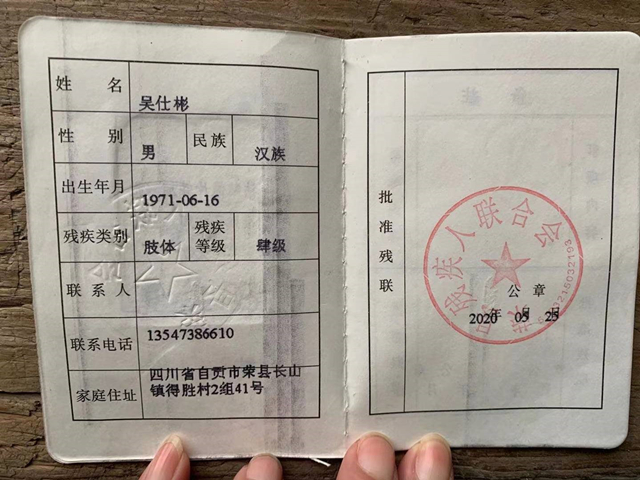 姓名 吴仕彬
性别 男 民族 汉族
出生年月 1971-06-16
残疾类别 肢体 残疾等级 肆级
联系人
联系电话 13547386610
家庭住址 四川省自贡市荣县长山
镇得胜村2组41号
批准残联
残疾人联合会
公章
2020年 05月 25日